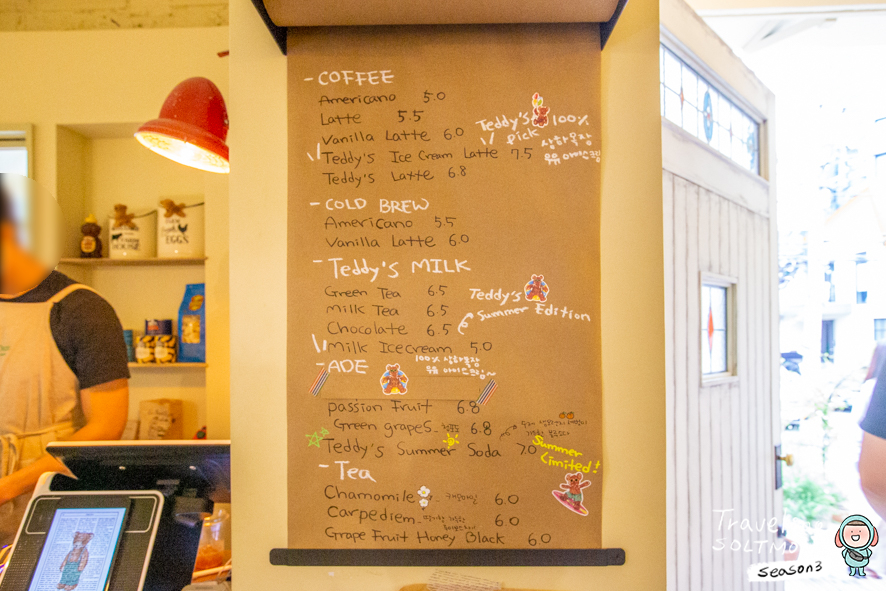 - COFFEE
Americano 5.0
Latte 5.5
Vanilla Latte 6.0
Teddy's Ice Cream Latte 7.5
Teddy's Latte 6.8
Teddy's pick
100%
상하목장
유유 아이스크림
- COLD BREW
Americano 5.5
Vanilla Latte 6.0
- Teddy's MILK
Green Tea 6.5
Milk Tea 6.5
Chocolate 6.5
Milk Icecream 5.0
Teddy's
Summer Edition
- ADE
100% 상하목장
passion Fruit 6.8
Green grapes - 청포도 6.8
Teddy's Summer Soda 7.0
Summer
Limited!
- Tea
Chamomile - 캐모마일 6.0
Carpediem - 6.0
Grape Fruit Honey Black 6.0
EGGS
Travel
SOLTMO
season3